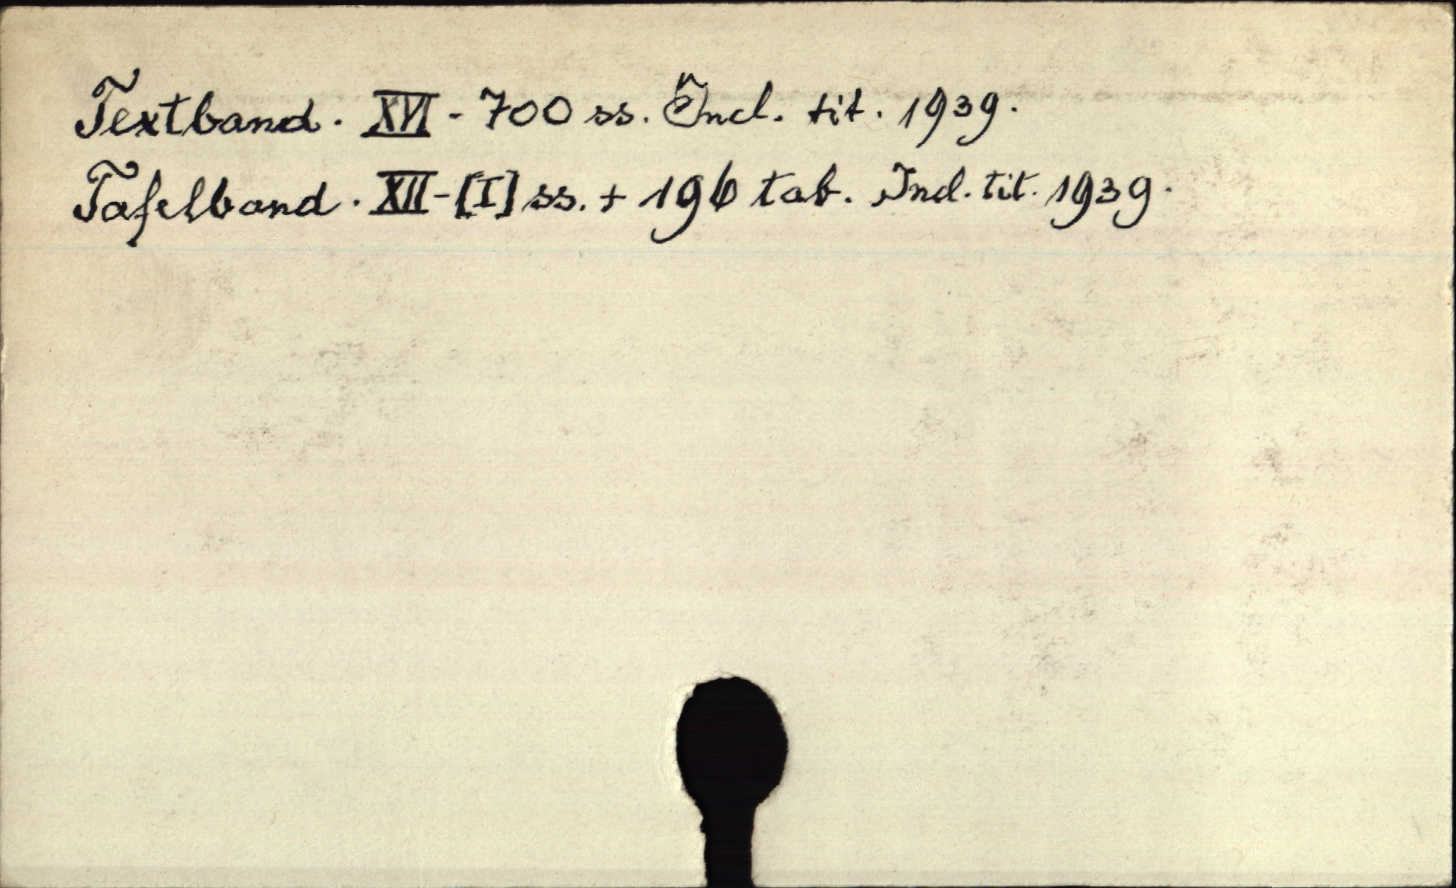 Textband. XVI - 700 ss. Incl. tit. 1939.
Tafelband. XII - [I] ss. + 196 tab. Incl. tit. 1939.